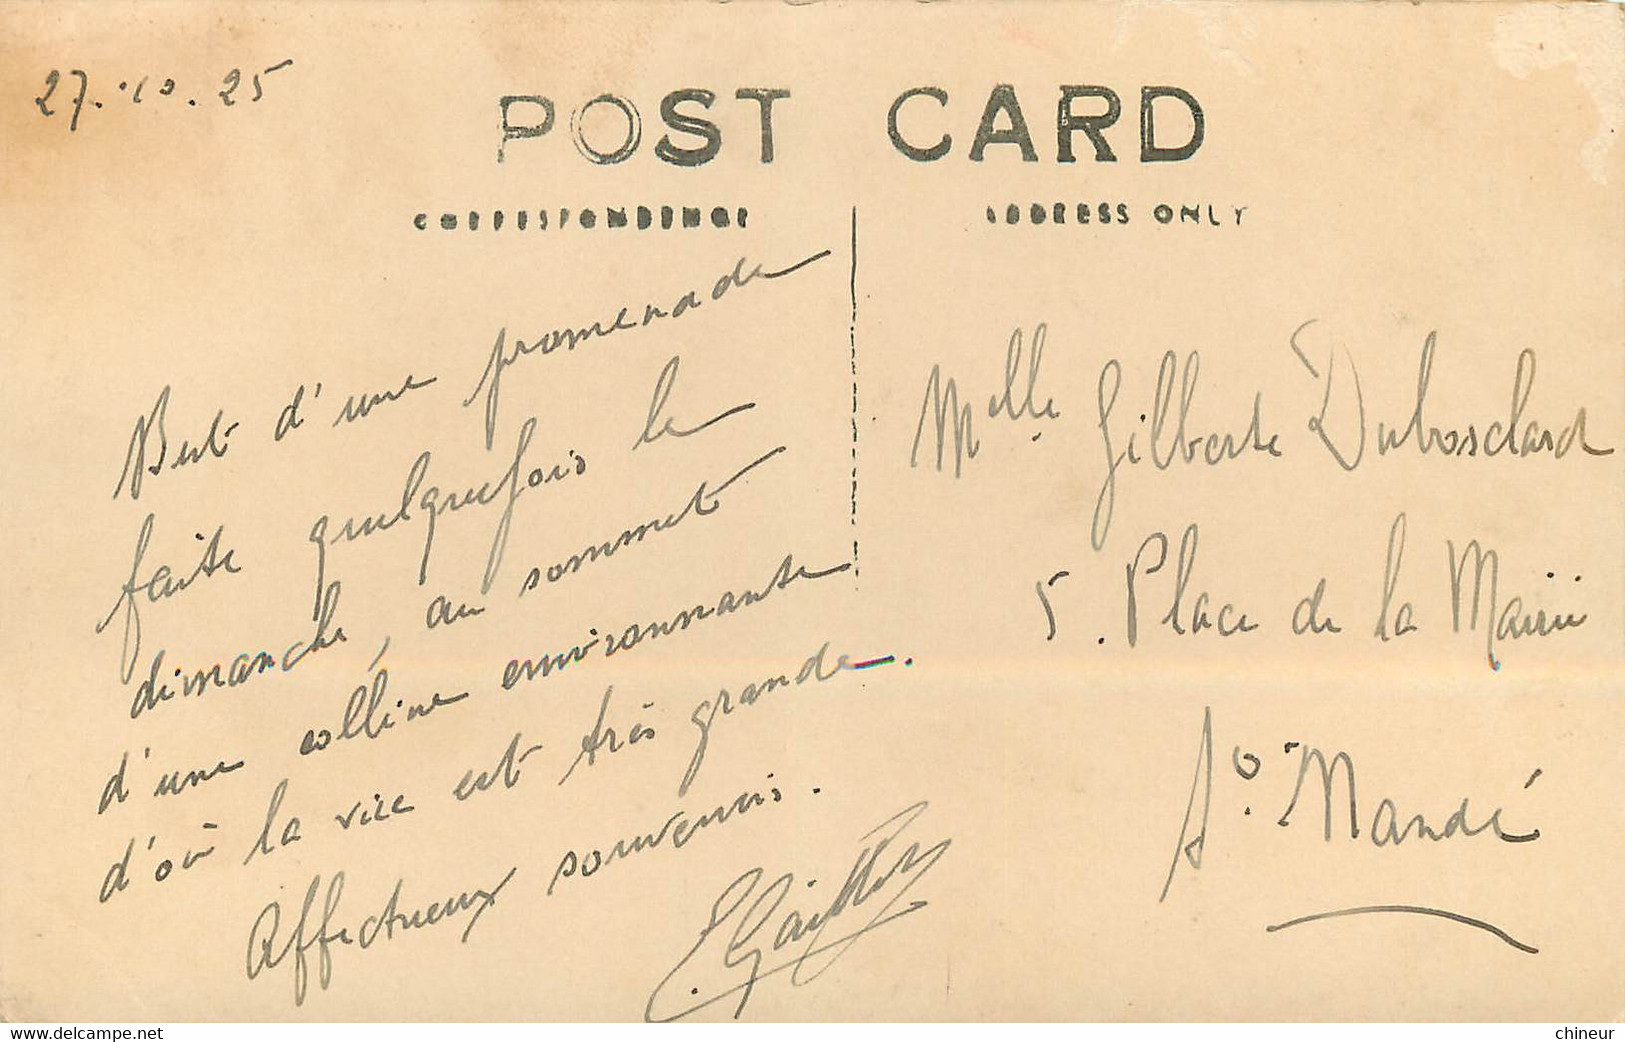 27.10.25
POST CARD
CORRESPONDENCE
ADDRESS ONLY
But d'une promenade
faite quelquefois le
dimanche, au sommet
d'une colline environnante
d'où la vue est très grande.
Affectueux souvenirs.
Melle Gilberte Dubosclard
5. Place de la Mairie
St. Mandé
www.delcampe.net
chineur